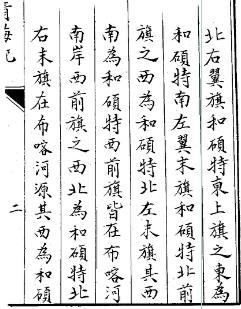 北右翼旗和碩特東上旗之東為
和碩特南左翼末旗和碩特北前
旗之西為和碩特北左末旗其西
南為和碩特西前旗皆在布喀河
南岸西前旗之西北為和碩特北
右末旗在布喀河源其西為和碩
青海記
二